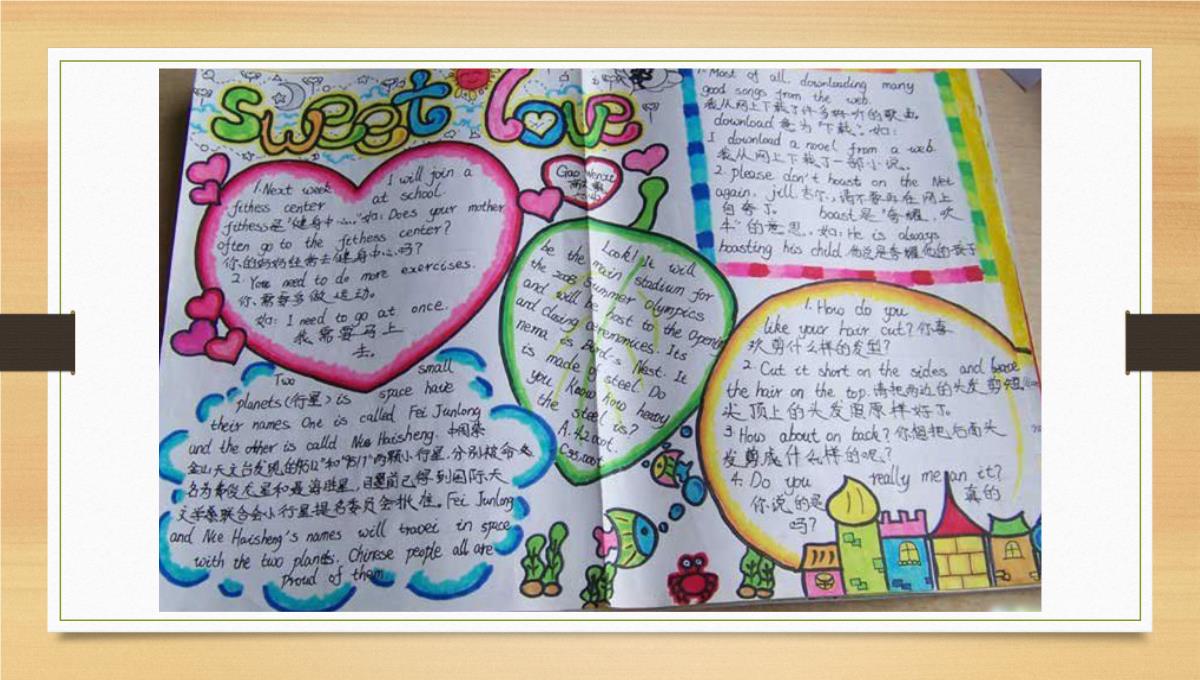 sweet love
Gao Wenai
1. Next week I will join a
fitness center at school.
fitness是“健身中心…”如: Does your mother
often go to the fitness center?
你的妈妈经常去健身中心吗?
2. You need to do more exercises.
你需要多做运动。
如: I need to go at once.
我需要马上
去。
Two small
planets(行星) is space have
their names One is called Fei Junlong
and the other is calld Nie Haisheng. 中国紫
金山天文台发现的 和 两颗小行星,分别被命
名为费俊龙星和聂海胜星,目前已得到国际天
文学联合会小行星提名委员会批准。Fei Junlong
and Nie Haisheng's names will travel in space
with the two planets. Chinese people all are
proud of them
Look! It will
be the main stadium for
the 2008 Summer Olympics
and will be host to the Opening
and closing ceremonies. Its
nema is Bird's Nest. It
is made of steel. Do
you know how heavy
the steel is?
A.42000t.
C35,000t
1. Most of all, downloading many
good songs from the web.
我从网上下载了许多好听的歌曲。
download意为“下载”。如:
I download a novel from a web.
我从网上下载了一部小说。
2. please don't boast on the Net
again, jill.吉尔,请不要再在网上
自夸了。 boast是“夸耀,吹
牛”的意思。如: He is always
boasting his child.他总是夸耀他的孩子
1. How do you
like your hair cut?你喜
欢剪什么样的发型?
2. Cut it short on the sides and leave
the hair on the top.请把两边的头发剪短
头顶上的头发照原样好了。
3 How about on back?你想把后面头
发剪成什么样的呢?
4. Do you really mean it?
你说的是 真的
吗?